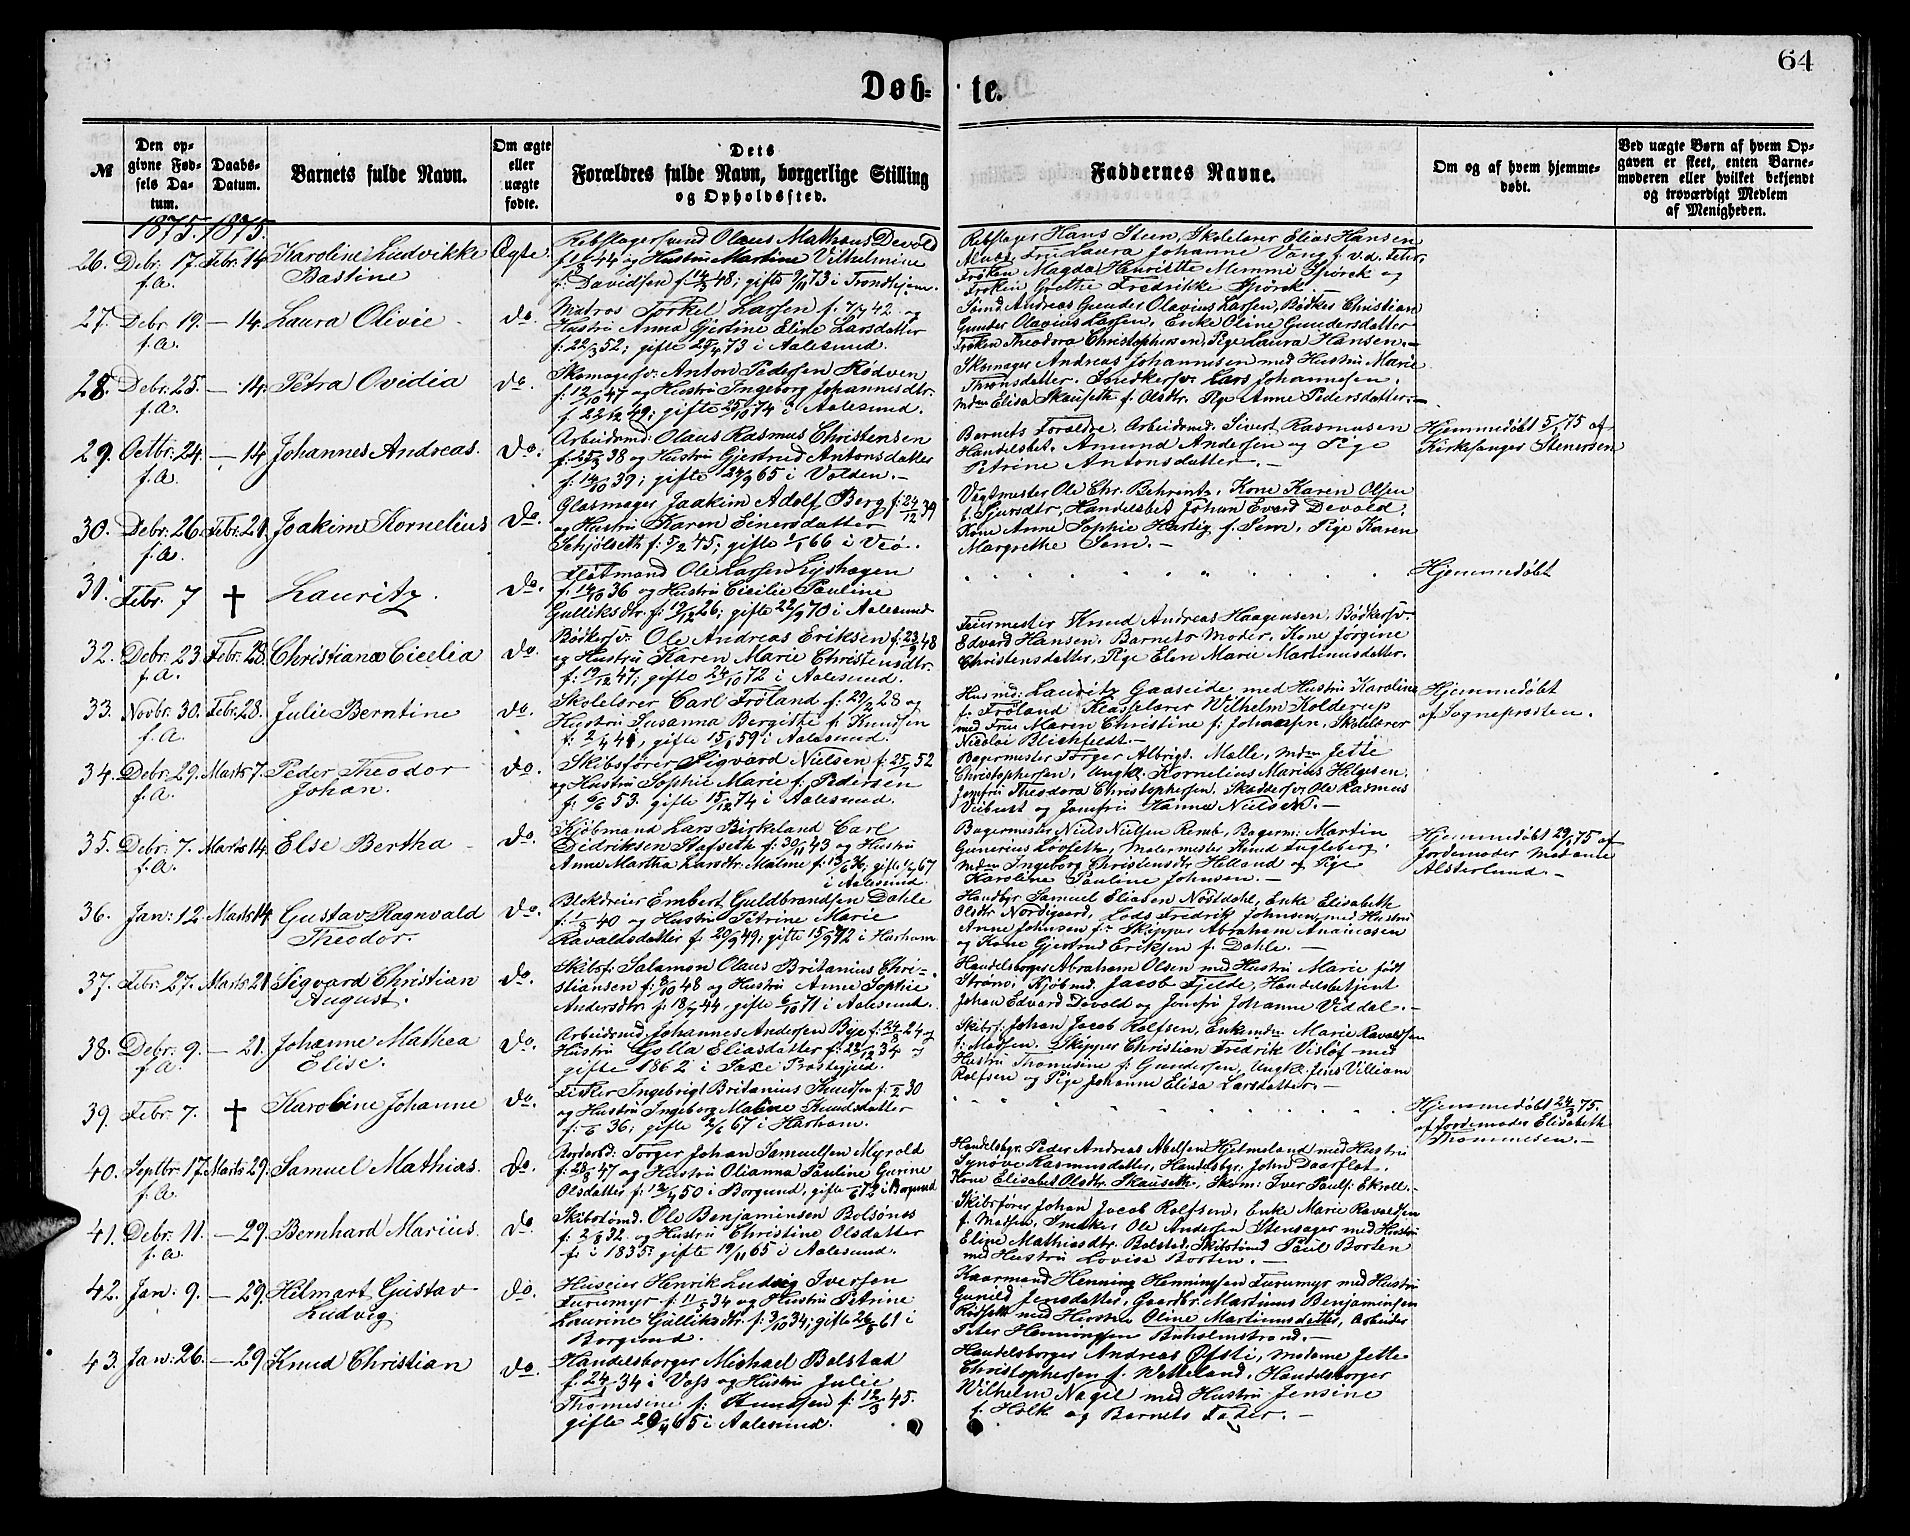 64
Døb- te.
№
Den op-
givne Fød-
sels Da-
tum.
Daabs-
Datum.
Barnets fulde Navn.
Om ægte
eller
uægte
fødte.
Dets
Forældres fulde Navn, borgerlige Stilling
og Opholdssted.
Faddernes Navne.
Om og af hvem hjemme-
døbt.
Ved uægte Børn af hvem Op-
gaven er skeet, enten Barne-
moderen eller hvilket bekjendt
og troværdigt Medlem
af Menigheden.
1875. 1875.
26. Debr. 17. f.A. Febr. 14. Karoline Ludvikke
Bastine
Ægte.
Rebslagersvend Olaus Mathæus Devold
f. 44 og Hustru Martine Vilhelmine
f. Davidsen f. 14/5 48; gifte 9/11 73 i Trondhjem.
Rebslager Hans Steen, Skolelærer Elias Hansen
Frue Laura Johanne Vang f. v.d. Feter,
Frøken Magda Henriette Memmi Spørck og
Frøken Grethe Fredrikke Spørck.
27. Debr. 19. f.A. — 14. Laura Olivie
do.
Matros Torkel Larsen f. 42 og
Hustru Anna Gjertine Eline Larsdatter
f. 22/3 52; gifte 25/4 73 i Aalesund.
Sømd Andreas Gunder Olavius Larsen, Bødker Christian
Gunder Olavius Larsen, Enke Oline Gundersdatter
Frøken Theodora Christophersen, Pige Laura Hansen.—
28. Debr. 25. f.A. — 14. Petra Ovidia
do.
Skomagersv. Anton Pedersen Rødven
f. 12/10 47 og Hustru Ingeborg Johannisdtr.
f. 23/12 49; gifte 25/10 74 i Aalesund.
Skomager Andreas Johannesen med Hustru Marie
Thronsdatter. Snedkersv. Lars Johannesen.
Mdm Elisa Skauseth f. Olsdtr. Pige Anne Pedersdatter.—
29. Octbr. 24. f.A. — 14. Johannes Andreas.
do.
Arbeidsmd: Olaus Rasmus Christensen
f. 25/3 38 og Hustru Gjertrud Antonsdatter
f. 14/10 39; gifte 24/9 65 i Volden.—
Barnets Forældre, Arbeidsmd. Sivert Rasmussen
Handelsbet. Amund Andersen og Pige
Petrine Antonsdatter.—
Hjemmedøbt 5/1 75 af
Kirkesanger Stenersen
30. Debr. 26. f.A. Febr. 21. Joakim Kornelius
do.
Glasmager Joakim Adolf Berg f. 24/12 39
og Hustru Karen Einersdatter
Schjølseth f. 5/2 45; gifte 1/1 66 i Veø.
Vegtmester Ole Chr. Behrentz, Kone Karen Olsen
f. Sjursdtr, Handelsbet Johan Evard Devold,
Kone Anne Sophie Hartig f. Sem, Pige Karen
Margrethe Sem.—
31. Febr. 7 † Lauritz.
do.
Fløtmand Ole Larsen Lyshagen
f. 14/10 36 og Hustru Cicilie Pauline
Gulliksdtr. f. 19/12 26; gifte 22/9 70 i Aalesund
Hjemmedøbt
32. Debr. 23. f.A. Febr. 28. Christiane Cicelia
do.
Bødkersv. Ole Andreas Eriksen f. 23/9 48
og Hustru Karen Marie Christensdtr.
f. 9/12 47; gifte 24/10 72 i Aalesund.
Feiermester Knud Andreas Haagensen, Bødkersv.
Edvard Hansen. Barnets Moder, Kone Jørgine
Christensdatter, Pige Elen Marie Martinusdatter.
33. Novbr. 30. f.A. Febr. 28. Julie Berntine
do.
Skolelærer Carl Frøland f. 29/2 28 og
Hustru Susanna Bergitte f. Knudsen
f. 2/4 41, gifte 15/1 59 i Aalesund.
Husmd: Lauritz Gaaseide med Hustru Karoline
f. Frøland Klasselærer Wilhelm Kolderup
med Frue Maren Christine f. Johansen, Skolelærer
Nicolai Blichfeldt.—
Hjemmedøbt
af Sogneprosten.
34. Debr. 29. f.A. Marts 7. Peder Theodor
Johan.
do.
Skibsfører Sigvard Nielsen f. 25/7 52
og Hustru Sophie Marie f. Pedersen
f. 6/6 53. gifte 15/12 74 i Aalesund.
Bagermester Torger Albrigt. Malle, Mdm Jette
Christophersen, Ungk. Kornelius Marius Helgesen.
Jomfru Theodora Christophersen. Skræddersv. Ole Rasmus
Viibust og Jomfru Hanna Nielsen.—
35. Debr. 7. f.A. Marts 14. Else Bertha
do.
Kjøbmand Lars Birkeland Carl
Didriksen Stafseth f. 30/11 43 og Hustru
Anne Martha Larsdtr. Malme f. 13/6 36, gifte 1/7 67
i Aalesund.
Bagermester Niels Nielsen Remb, Bagerm: Martin
Gunerius Løvseth, Malermester Knud Fugleberg.
Mdm Ingeborg Christensdtr. Helland og Pige
Karoline Pauline Johnsen.—
Hjemmedøbt 29/1 75 af
Jordemoder Madame
Alsterlund.—
36. Jan: 12. Marts 14. Gustav Ragnvald
Theodor.
do.
Blokdreier Embert Guldbrandsen Dahle
f. 1/3 40 og Hustru Petrine Marie
Ravaldsdatter f. 20/9 49; gifte 15/9 72 i Harham
Handbgr. Samuel Eliasen Nøstdahl, Enke Elisabeth
Olsdtr. Nordigaard, Lods Fredrik Johnsen med Hustru
Anne Johnsen f. Skipper Abraham Ananiasen
og Kone Gjertrud Eriksen f. Dahle.—
37. Febr. 27. Marts 21. Sigvard Christian
August.
do.
Skibsf: Salamon Olaus Britanius Chri-
stiansen f. 8/10 48 og Hustru Anne Sophie
Andersdtr. f. 18/7 44, gifte 6/10 71 i Aalesund.
Handelsborger Abraham Olsen med Hustru Marie født
Strøm, Kjøbmd. Jacob Fjelde, Handelsbetjent
Johan Edvard Devold og Jomfru Johanne Viddal.—
38. Debr. 9. f.A. — 21. Johanne Mathea
Elise.
do.
Arbeidsmd. Johannes Andersen Bye f. 24/8 24 og
Hustru Golla Eliasdatter f. 22/12 34
gifte 1862 i Saxe Prostegjeld.
Skibsf: Johan Jacob Rolfsen, Enkemdm: Marie Ravaldsen
f. Madsen. Skipper Christian Fredrik Visløf med
Hustru Thomasine f. Gundersen, Ungk. Jens Villiam
Rolfsen og Pige Johanne Elisa Larsdatter.—
39. Febr. 7. † Karoline Johanne
do.
Fisker Ingebrigt Britanius Knudsen f. 7/2 30
og Hustru Ingeborg Maline Knudsdatter
f. 36; gifte 2/6 67 i Harham.
Hjemmedøbt 24/3 75.
af Jordemoder Elisabeth
Thommesen.—
40. Septbr. 17 f.A. Marts 29. Samuel Mathias.
do.
Torger Johan Samuelsen Myrold
f. 28/8 47 og Hustru Olianna Pauline Gurine
Olsdatter f. 12/4 50 i Borgund, gifte 72 i Borgund
Handelsbgr. Peder Andreas Abelsen Hjelmeland med Hustru
Synøve Rasmusdatter, Handelsbgr. John Daarflot.
Kone Elisabet Olsdtr. Skauseth, Skom: Iver Paulss: Ekroll.—
41. Debr. 11. f.a. — 29. Bernhard Marius.
do
Skibstømd. Ole Benjaminsen Bolsønes
f. 2/8 32. og Hustru Christine Olsdatter
f. i 1835. gifte 19/11 65 i Aalesund.
Skibsfører Johan Jacob Rolfsen, Enke Marie Ravaldsen
f. Madsen, Snikker Ole Andersen Stensager med Hustru
Eline Mathiasdtr. Bolstad, Skibstømd Paul Borten
med Hustru Lovise Borten.—
42. Jan: 9. — 29. Hilmart Gustav
Ludvig
do.
Huseier Henrik Ludvig Iversen
Furumyr f. 11/5 34 og Hustru Petrine
Laurine Gulliksdtr. f. 3/10 34; gifte 26/5 61 i
Borgund.
Kaarmand Henning Henningsen Furumyr med Hustru
Gunild Jensdatter, Gaardbr: Martinus Benjaminsen
Rødseth med Hustru Oline Martinusdatter, Arbeider
Peter Henningsen Buholmstrand.—
43. Jan: 26. — 29. Knud Christian
do.
Handelsborger Michael Bolstad
f. 24/4 34 i Voss og Hustru Julie
Thomesine f. Knudsen f. 12/3 45.
gifte 20/4 65 i Aalesund.
Handelsborger Andreas Øfsti, Madame Jette
Christophersen f. Wetteland, Handelsborger
Wilhelm Nagel med Hustru Jensine
f. Holk og Barnets Fader.—